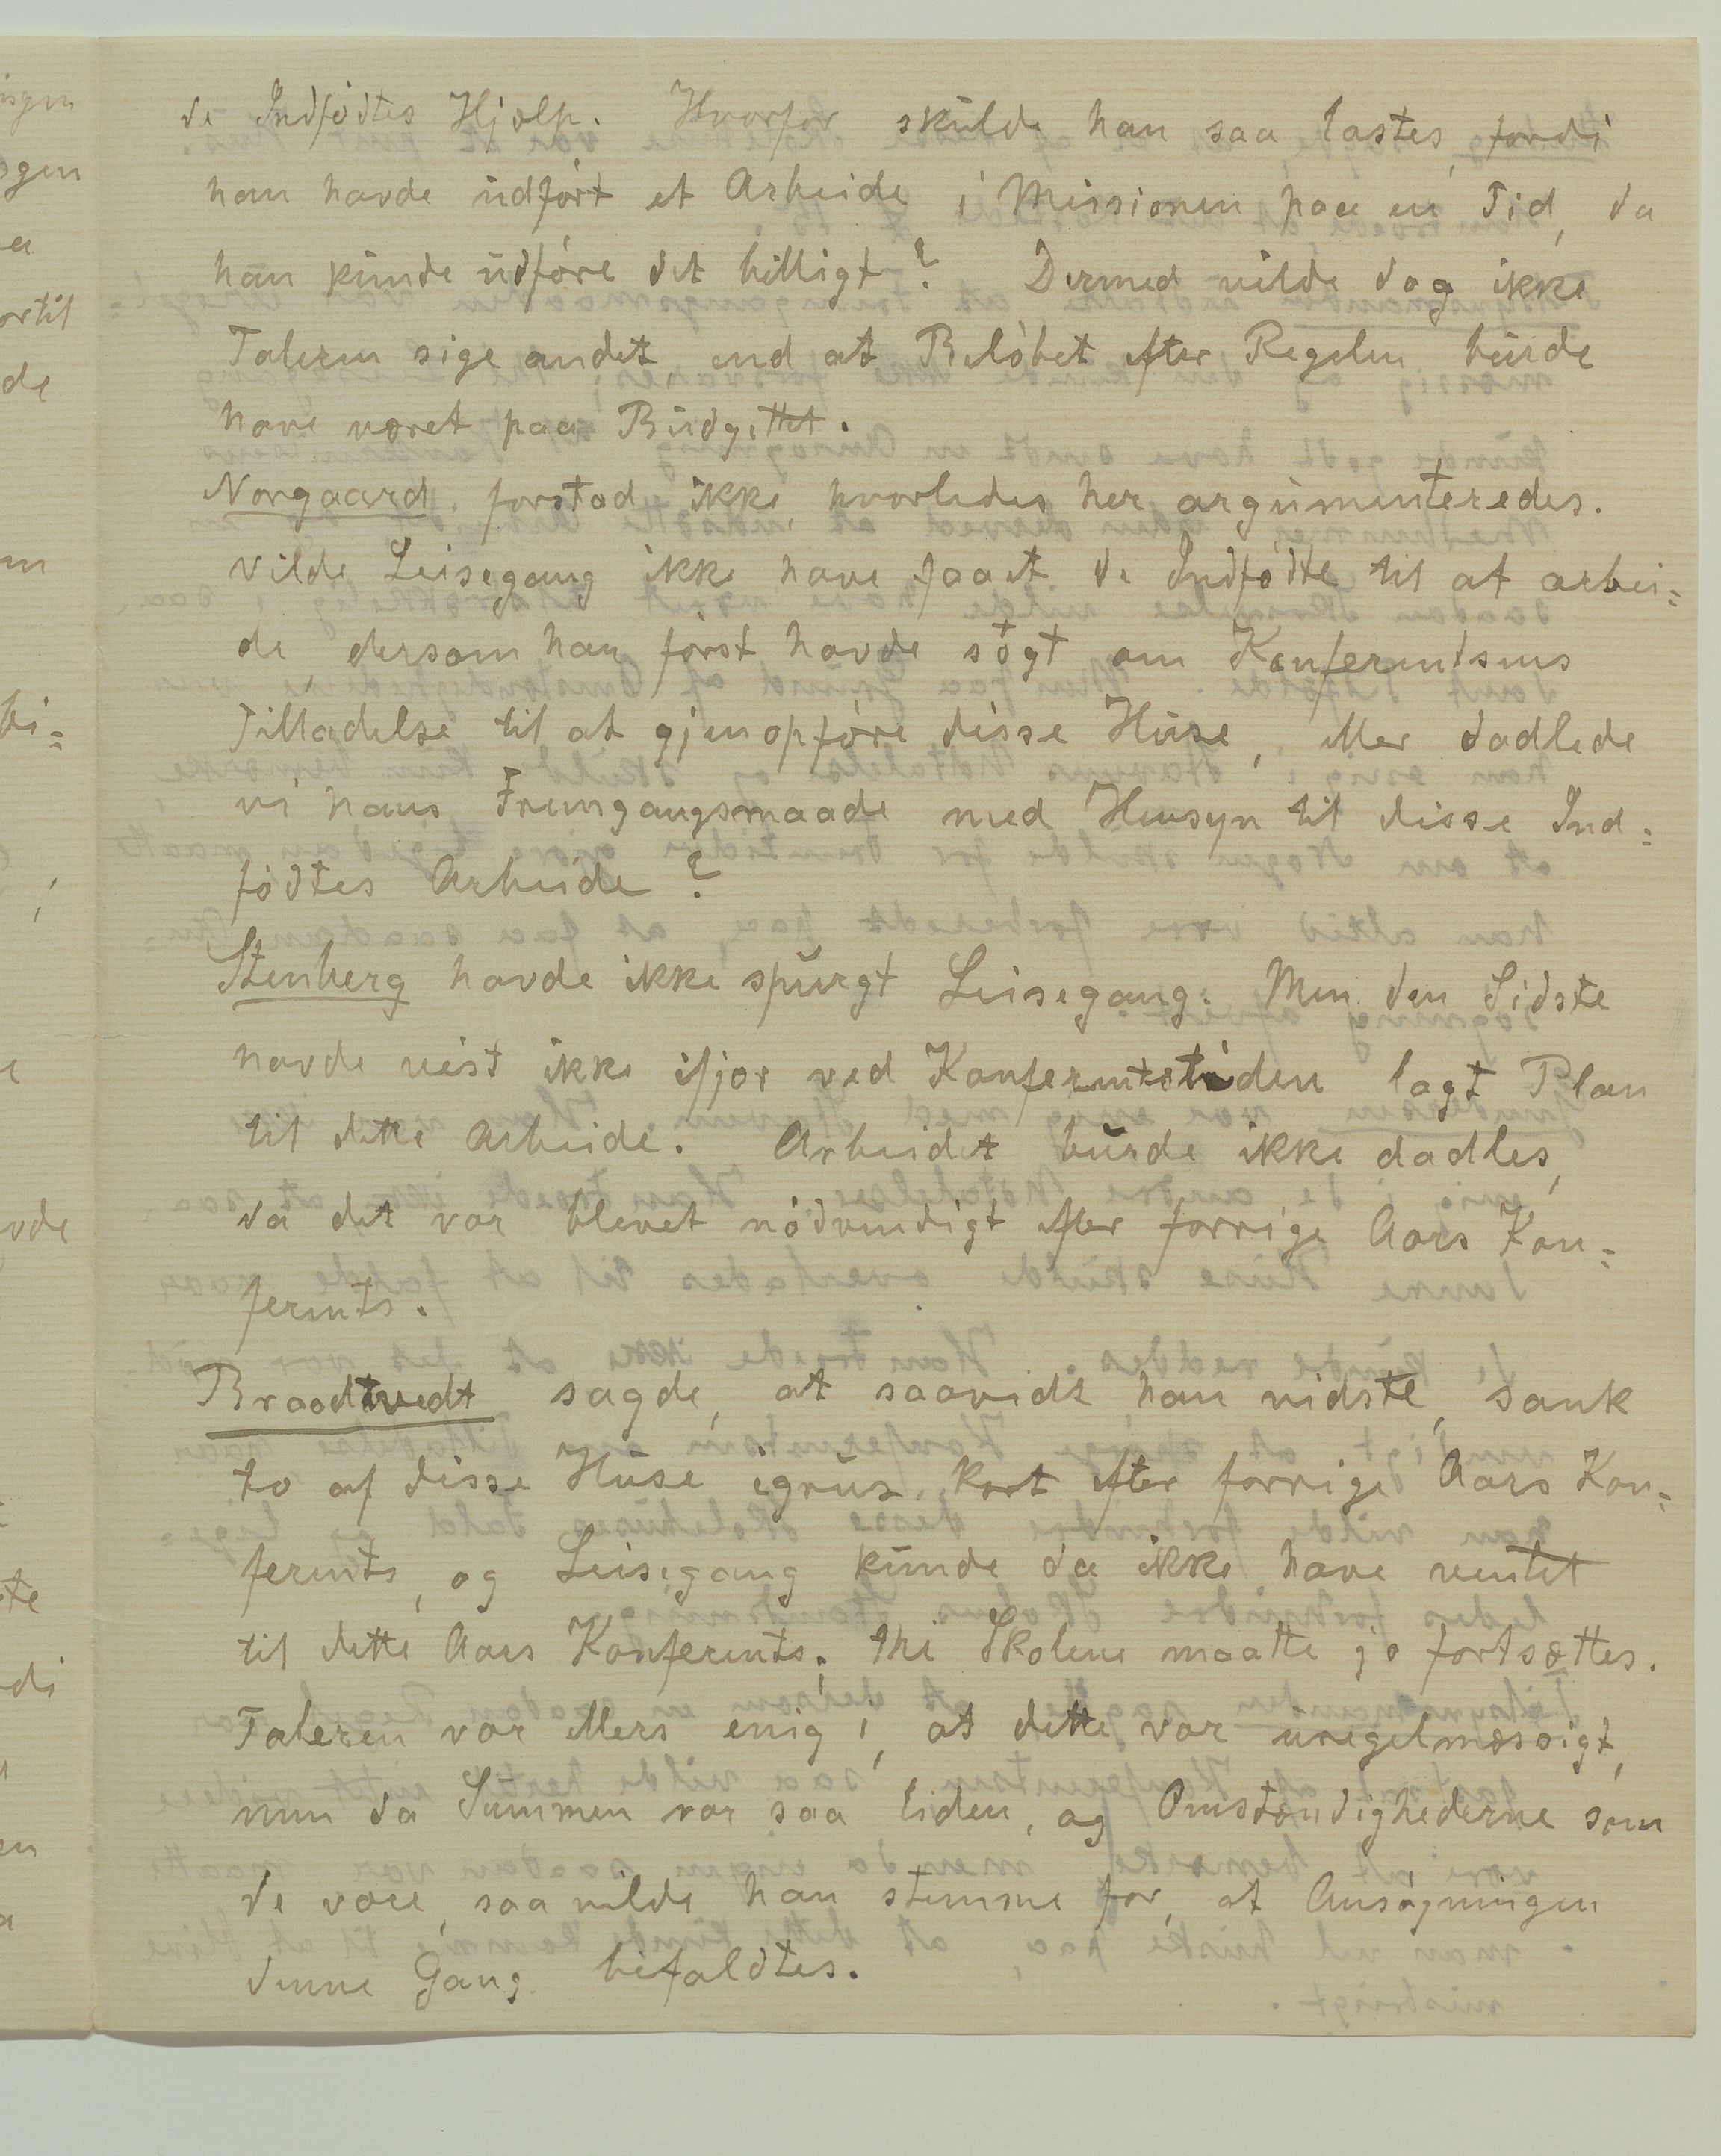 de Indfødtes Hjælp. Hvorfor skulde han saa lastes, fordi
han havde udført et Arbeide i Missionen paa en Tid, da
han kunde udføre det billigt? Dermed vilde dog ikke
Taleren sige andet, end at Beløbet efter Regelen burde
have været paa Budgettet.
Norgaard forstod ikke, hvorledes her argumenteredes.
Vilde Leisegang ikke have faaet de Indfødte til at arbei=
de, dersom han først havde søgt om Konferentsens
Tilladelse til at gjenopføre disse Huse, eller dadlede
vi hans Fremgangsmaade med Hensyn til disse Ind=
fødtes Arbeide?
Stenberg havde ikke spurgt Leisegang. Men den Sidste
havde vist ikke ifjor ved Konferentstiden lagt Plan
til dette Arbeide. Arbeidet burde ikke dadles,
da det var blevet nødvendigt efter forrige Aars Kon=
ferents.
Braadtvedt sagde, at saavidt han vidste, sank
to af disse Huse igrus kort efter forrige Aars Kon=
ferents, og Leisegang kunde da ikke have ventet
til dette Aars Konferents; thi Skolene maatte jo fortsættes.
Taleren var ellers enig i, at dette var uregelmæssigt,
men da Summen var saa liden, og Omstændighederne som
de vare, saa vilde han stemme for, at Ansøgningen
denne Gang bifaldtes.